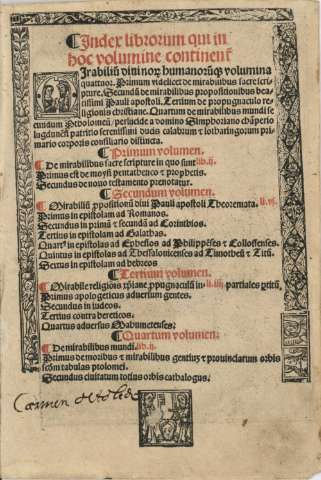 ¶Index librorum qui in
hoc volumine continent̃
MIrabiliũ diuinoꝝ humanorũq; volumina
quattuor. Primum videlicet de mirabilibus sacre scri
pture. Secundũ de mirabilibus propositionibus bea
tissimi Pauli apostoli. Tertium de propugnaculo re
ligionis christiane. Quartum de mirabilibus mundi se
cundum Ptolomeũ, perlucide a domino Simphoriano chãperio
lugdunẽ patrio serenissimi ducis calabrum et lotharingorum primar
io corporis consiliario distincta.
¶Primum volumen.
¶De mirabilibus sacre scripture in quo sunt lib.ij.
Primus est de moysi pentatheuco et prophetis.
Secundus de nouo testamento prenotatur.
¶Secundum volumen.
¶Mirabiliũ ꝓpositionũ diui Pauli apostoli Theoremata. li.vj.
Primus in epistolam ad Romanos.
Secundus in primã et secundã ad Corinthios.
Tertius in epistolam ad Galathas.
Quart⁹ in epistolas ad Ephesios ad Philippẽses et Collossenses.
Quintus in epistolas ad Thessalonicenses ad Timotheũ et Titũ.
Sextus in epistolam ad hebreos
¶Tertium volumen.
¶Mirabile religiõis xp̃iane ꝓpugnaculũ in .li.iiij. partiales ꝑtitũ.
Primus apologeticus aduersum gentes.
Secundus in iudeos.
Tertius contra hereticos.
Quartus aduersus Mahumetenses.
¶Quartum volumen.
¶De mirabilibus mundi. lib.ij.
Primus de moribus et mirabilibus gentiũ et prouinciarum orbis
scd̃m tabulas ptolomei.
Secundus ciuitatum totius orbis cathalogus.